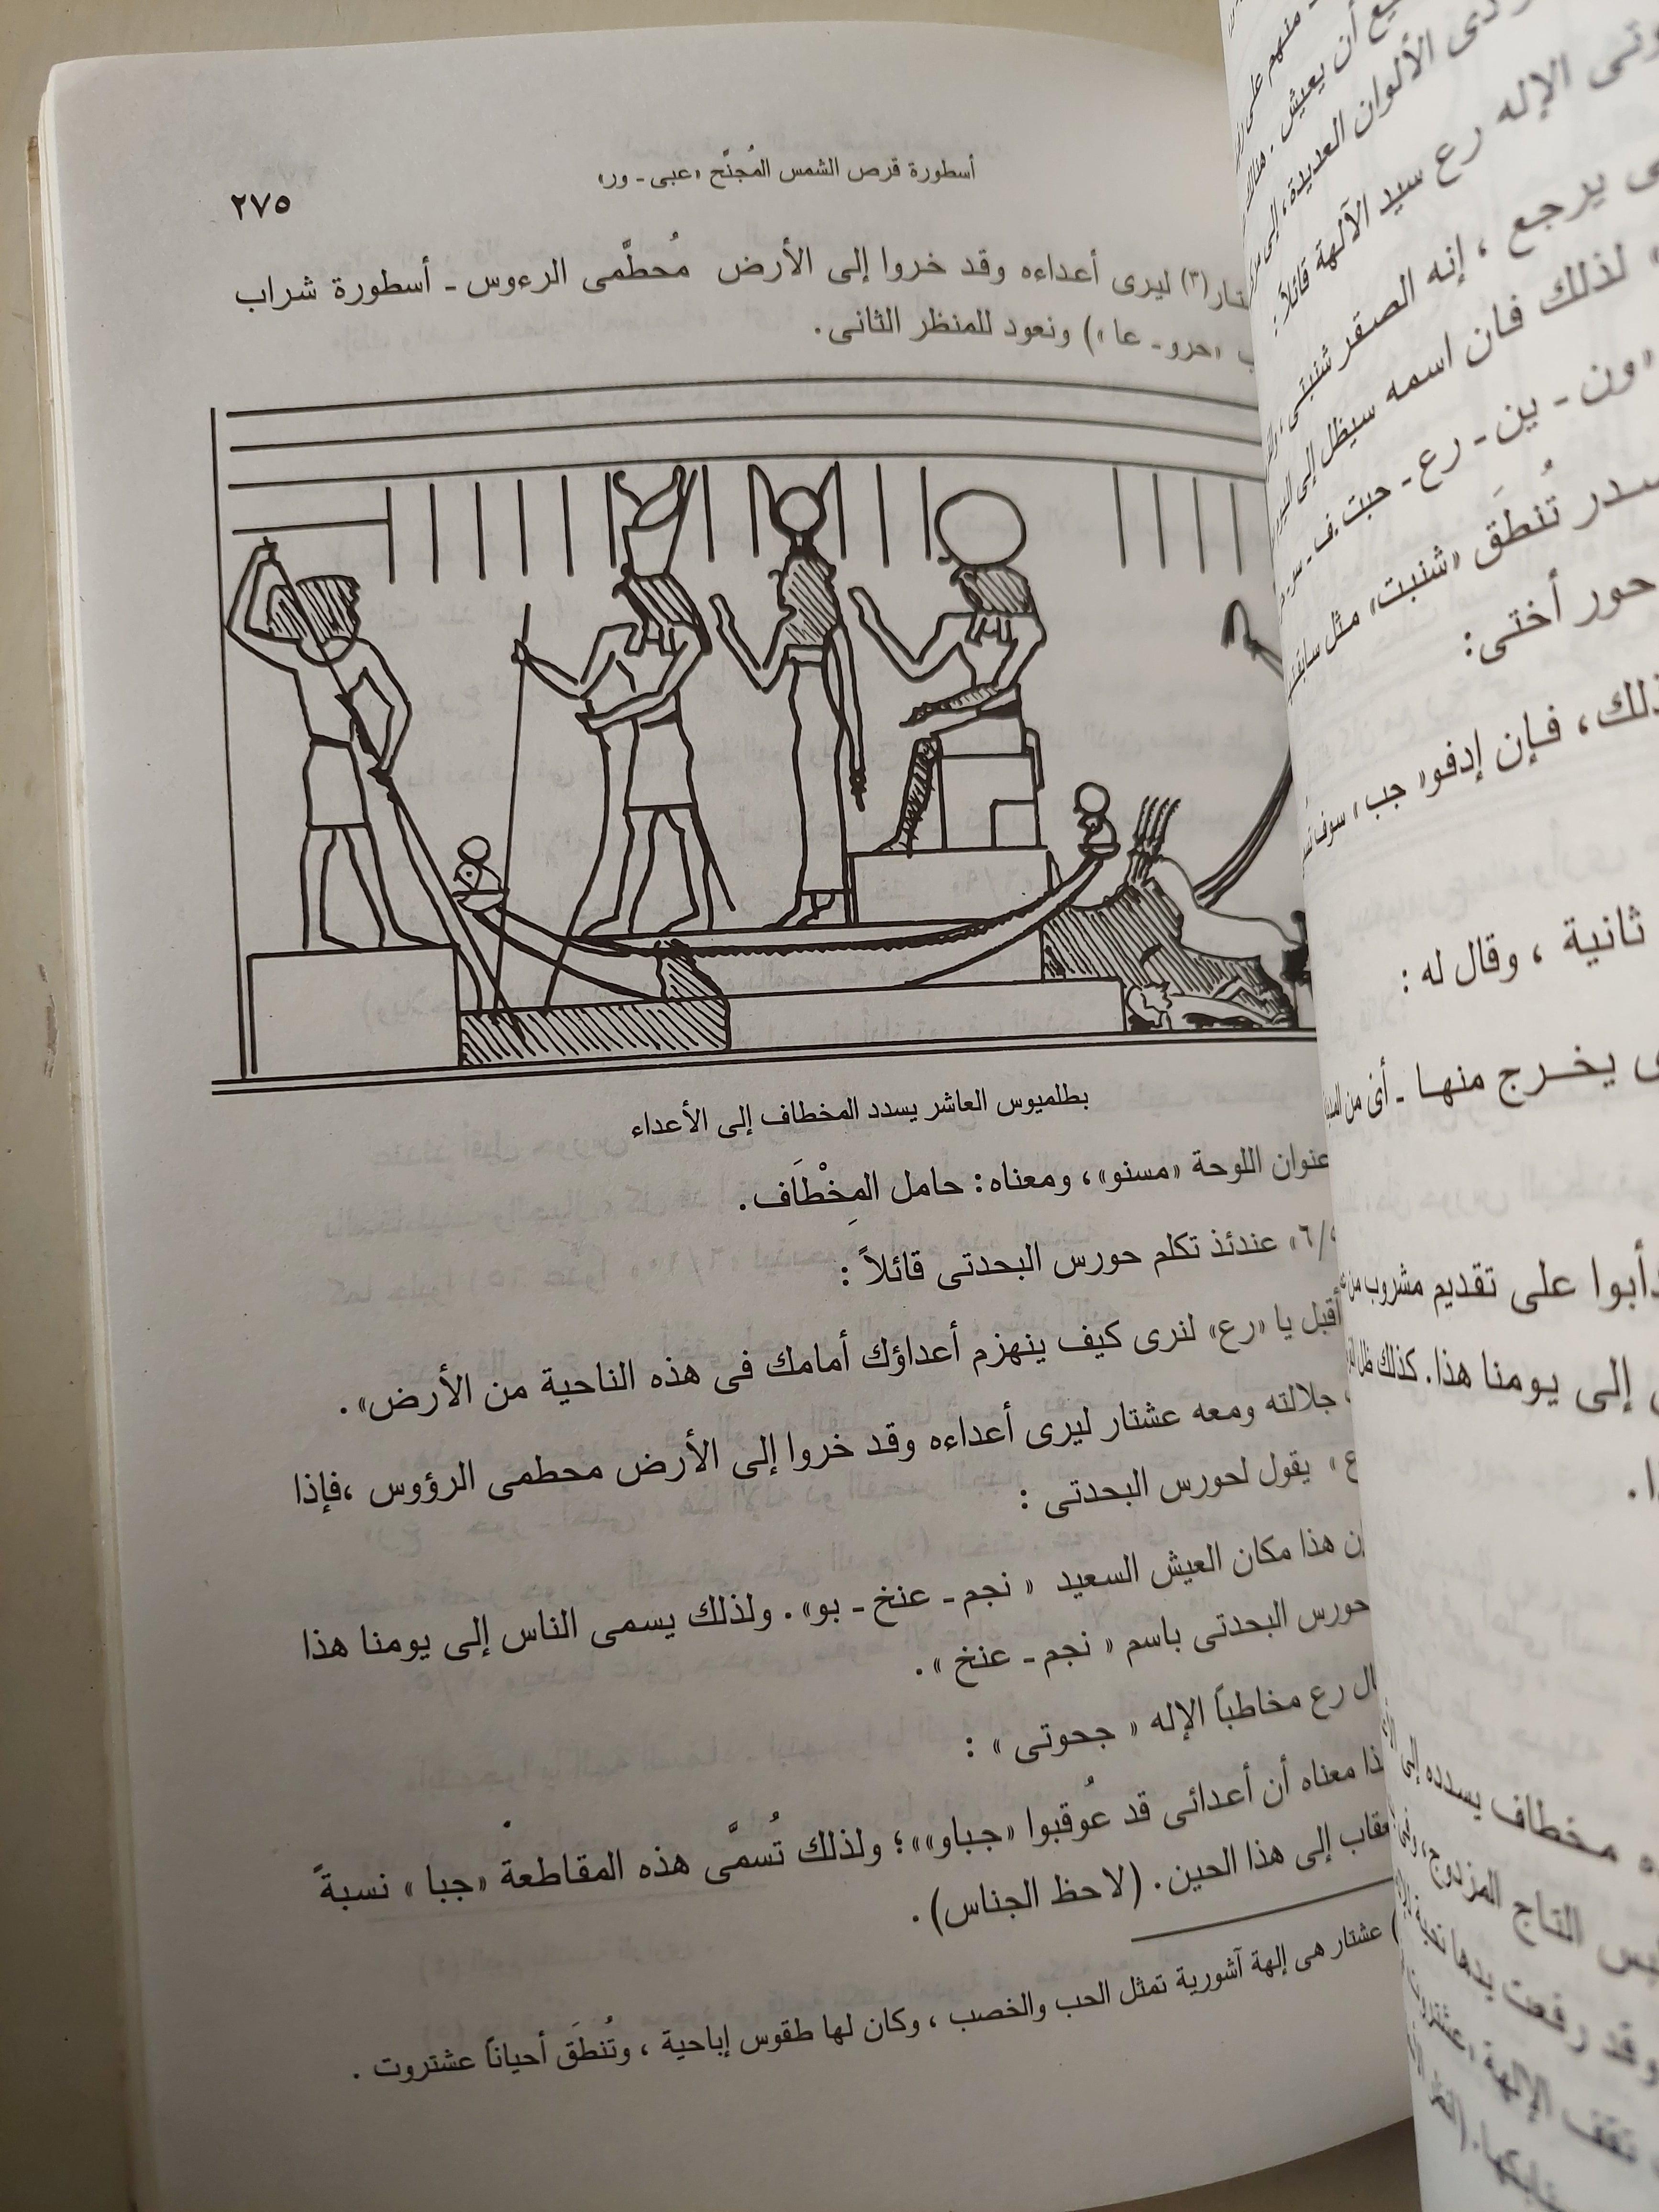 أسطورة قرص الشمس المُجنَّح «عبى ـ ور»
٢٧٥
(٣) ليرى أعداءه وقد خروا إلى الأرض مُحطَّمى الرءوس ـ أسطورة شراب
«حرو ـ عا») ونعود للمنظر الثانى.
بطلميوس العاشر يسدد المخطاف إلى الأعداء
عنوان اللوحة «مسنو»، ومعناه: حامل المِخْطَاف.
عندئذ تكلم حورس البحدتى قائلاً :
أقبل يا «رع» لنرى كيف ينهزم أعداؤك أمامك فى هذه الناحية من الأرض».
جلالته ومعه عشتار ليرى أعداءه وقد خروا إلى الأرض محطمى الرؤوس ،فإذا
يقول لحورس البحدتى :
هذا مكان العيش السعيد « نجم ـ عنخ ـ بو». ولذلك يسمى الناس إلى يومنا هذا
حورس البحدتى باسم « نجم ـ عنخ ».
رع مخاطباً الإله « جحوتى » :
معناه أن أعدائى قد عُوقبوا «جباو»»؛ ولذلك تُسمَّى هذه المقاطعة «جبا » نسبةً
إلى هذا الحين. (لاحظ الجناس).
عشتار هى إلهة آشورية تمثل الحب والخصب ، وكان لها طقوس إباحية ، وتُنطَق أحياناً عشتروت .
منهم على
أن يعيش . هنالك
الألوان العديدة، إلى
الإله رع سيد الآلهة قائلاً :
يرجع ، إنه الصقر شنبتى،
لذلك فان اسمه سيظل إلى
«ون ـ ين ـ رع ـ حبت.ف ـ
تُنطَق «شنبت» مثل
حور أختى:
فإن إدفو« جب » سوف
ثانية ، وقال له :
يخرج منها ـ أى من
دأبوا على تقديم مشروب من
إلى يومنا هذا. كذلك ظل
مخطاف يسدده إلى
التاج المزدوج،
وقد رفعت يدها
تقف الإلهة